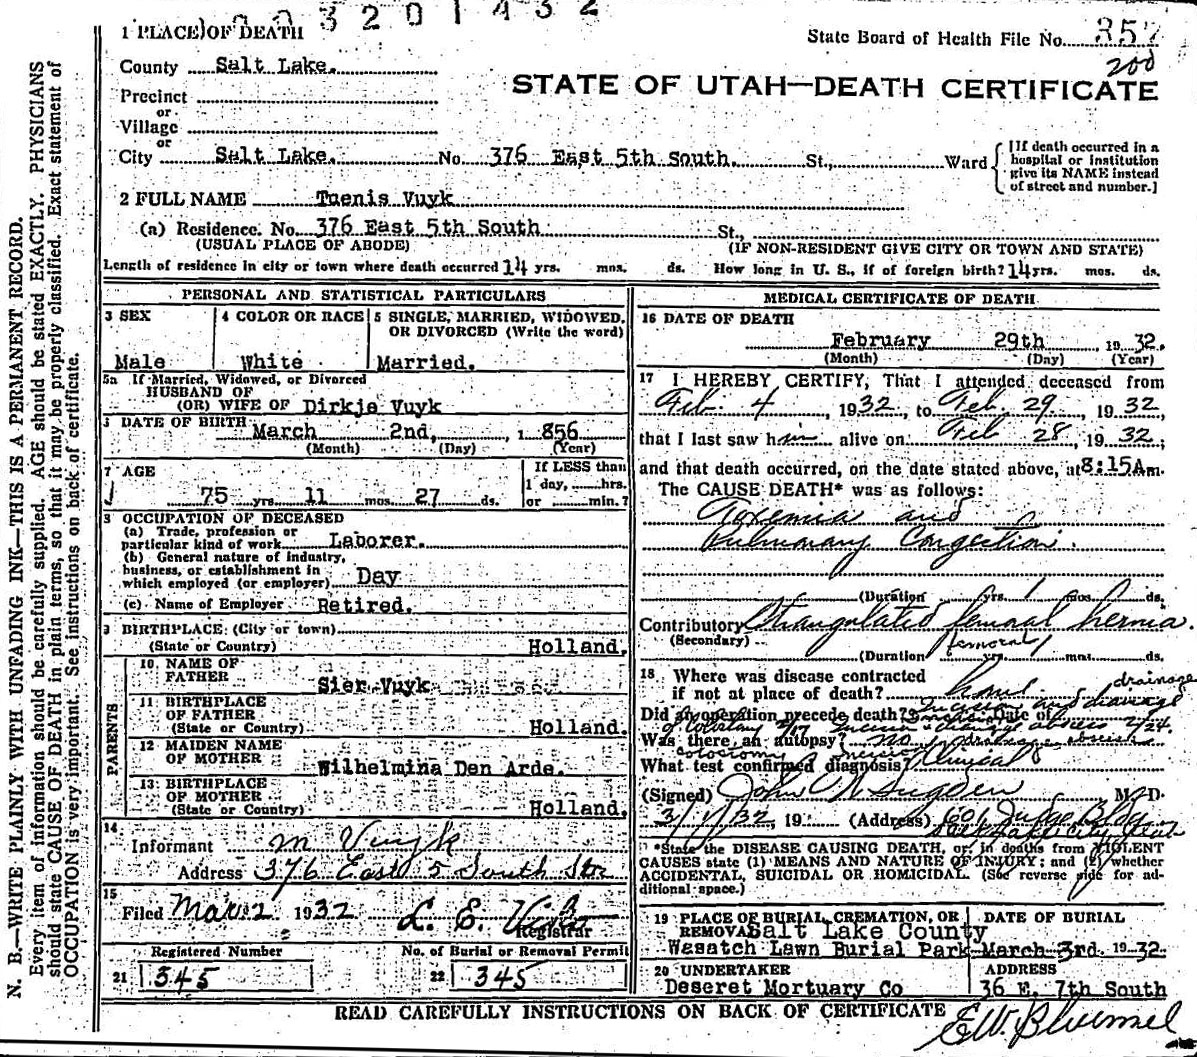 3 2 0 1 4 3 2
1 PLACE OF DEATH
State Board of Health File No. 357
200
County Salt Lake.
STATE OF UTAH—DEATH CERTIFICATE
Precinct
or
Village
or
City Salt Lake. No. 376 East 5th South. St., Ward
[If death occurred in a hospital or institution give its NAME instead of street and number.]
2 FULL NAME Tuenis Vuyk
(a) Residence. No. 376 East 5th South St.,
(USUAL PLACE OF ABODE) (IF NON-RESIDENT GIVE CITY OR TOWN AND STATE)
Length of residence in city or town where death occurred 14 yrs. mos. ds. How long in U. S., if of foreign birth? 14 yrs. mos. ds.
PERSONAL AND STATISTICAL PARTICULARS
3 SEX
Male
4 COLOR OR RACE
White
5 SINGLE, MARRIED, WIDOWED, OR DIVORCED (Write the word)
Married.
5a If Married, Widowed, or Divorced
HUSBAND OF
(OR) WIFE OF Dirkje Vuyk
DATE OF BIRTH March 2nd, 1856
(Month) (Day) (Year)
7 AGE
75 yrs. 11 mos. 27 ds.
If LESS than
1 day, hrs.
or min.?
8 OCCUPATION OF DECEASED
(a) Trade, profession or
particular kind of work Laborer.
(b) General nature of industry,
business, or establishment in
which employed (or employer) Day
(c) Name of Employer Retired.
9 BIRTHPLACE (City or town)
(State or Country) Holland.
PARENTS
10 NAME OF
FATHER Sier Vuyk
11 BIRTHPLACE
OF FATHER
(State or Country) Holland.
12 MAIDEN NAME
OF MOTHER Wilhelmina Den Arde.
13 BIRTHPLACE
OF MOTHER
(State or Country) Holland.
14
Informant M Vuyk
Address 376 East 5 South Str
15
Filed Mar 2 1932 L. E.
Registrar
Registered Number No. of Burial or Removal Permit
21 345 22 345
MEDICAL CERTIFICATE OF DEATH
16 DATE OF DEATH
February 29th 1932.
(Month) (Day) (Year)
17 I HEREBY CERTIFY, That I attended deceased from
Feb. 4, 1932, to Feb. 29, 1932,
that I last saw him alive on Feb 28, 1932,
and that death occurred, on the date stated above, at 8:15Am.
The CAUSE DEATH* was as follows:
Toxemia and
Pulmonary Congestion.
(Duration yrs. 1 mos. ds.
Contributory Strangulated femoral hernia.
(Secondary) (femoral)
(Duration yrs. mos. ds.
18 Where was disease contracted
if not at place of death? home
drainage
Did an operation precede death? Incision and drainage Date of
of abscess 2/24.
Was there an autopsy? no
What test confirmed diagnosis? Clinical
(Signed) John M. D.
3/1/32, 19 (Address) 601 Judge Bldg
Salt Lake City, Utah
*State the DISEASE CAUSING DEATH, or, in deaths from VIOLENT
CAUSES state (1) MEANS AND NATURE OF INJURY; and (2) whether
ACCIDENTAL, SUICIDAL OR HOMICIDAL. (See reverse side for additional space.)
19 PLACE OF BURIAL, CREMATION, OR REMOVAL
Salt Lake County
Wasatch Lawn Burial Park
DATE OF BURIAL
March 3rd. 1932.
20 UNDERTAKER
Deseret Mortuary Co
ADDRESS
36 E. 7th South
READ CAREFULLY INSTRUCTIONS ON BACK OF CERTIFICATE
E.W. Bluemel
N. B.—WRITE PLAINLY WITH UNFADING INK—THIS IS A PERMANENT RECORD.
Every item of information should be carefully supplied. AGE should be stated EXACTLY. PHYSICIANS
should state CAUSE OF DEATH in plain terms, so that it may be properly classified. Exact statement of
OCCUPATION is very important. See instructions on back of certificate.